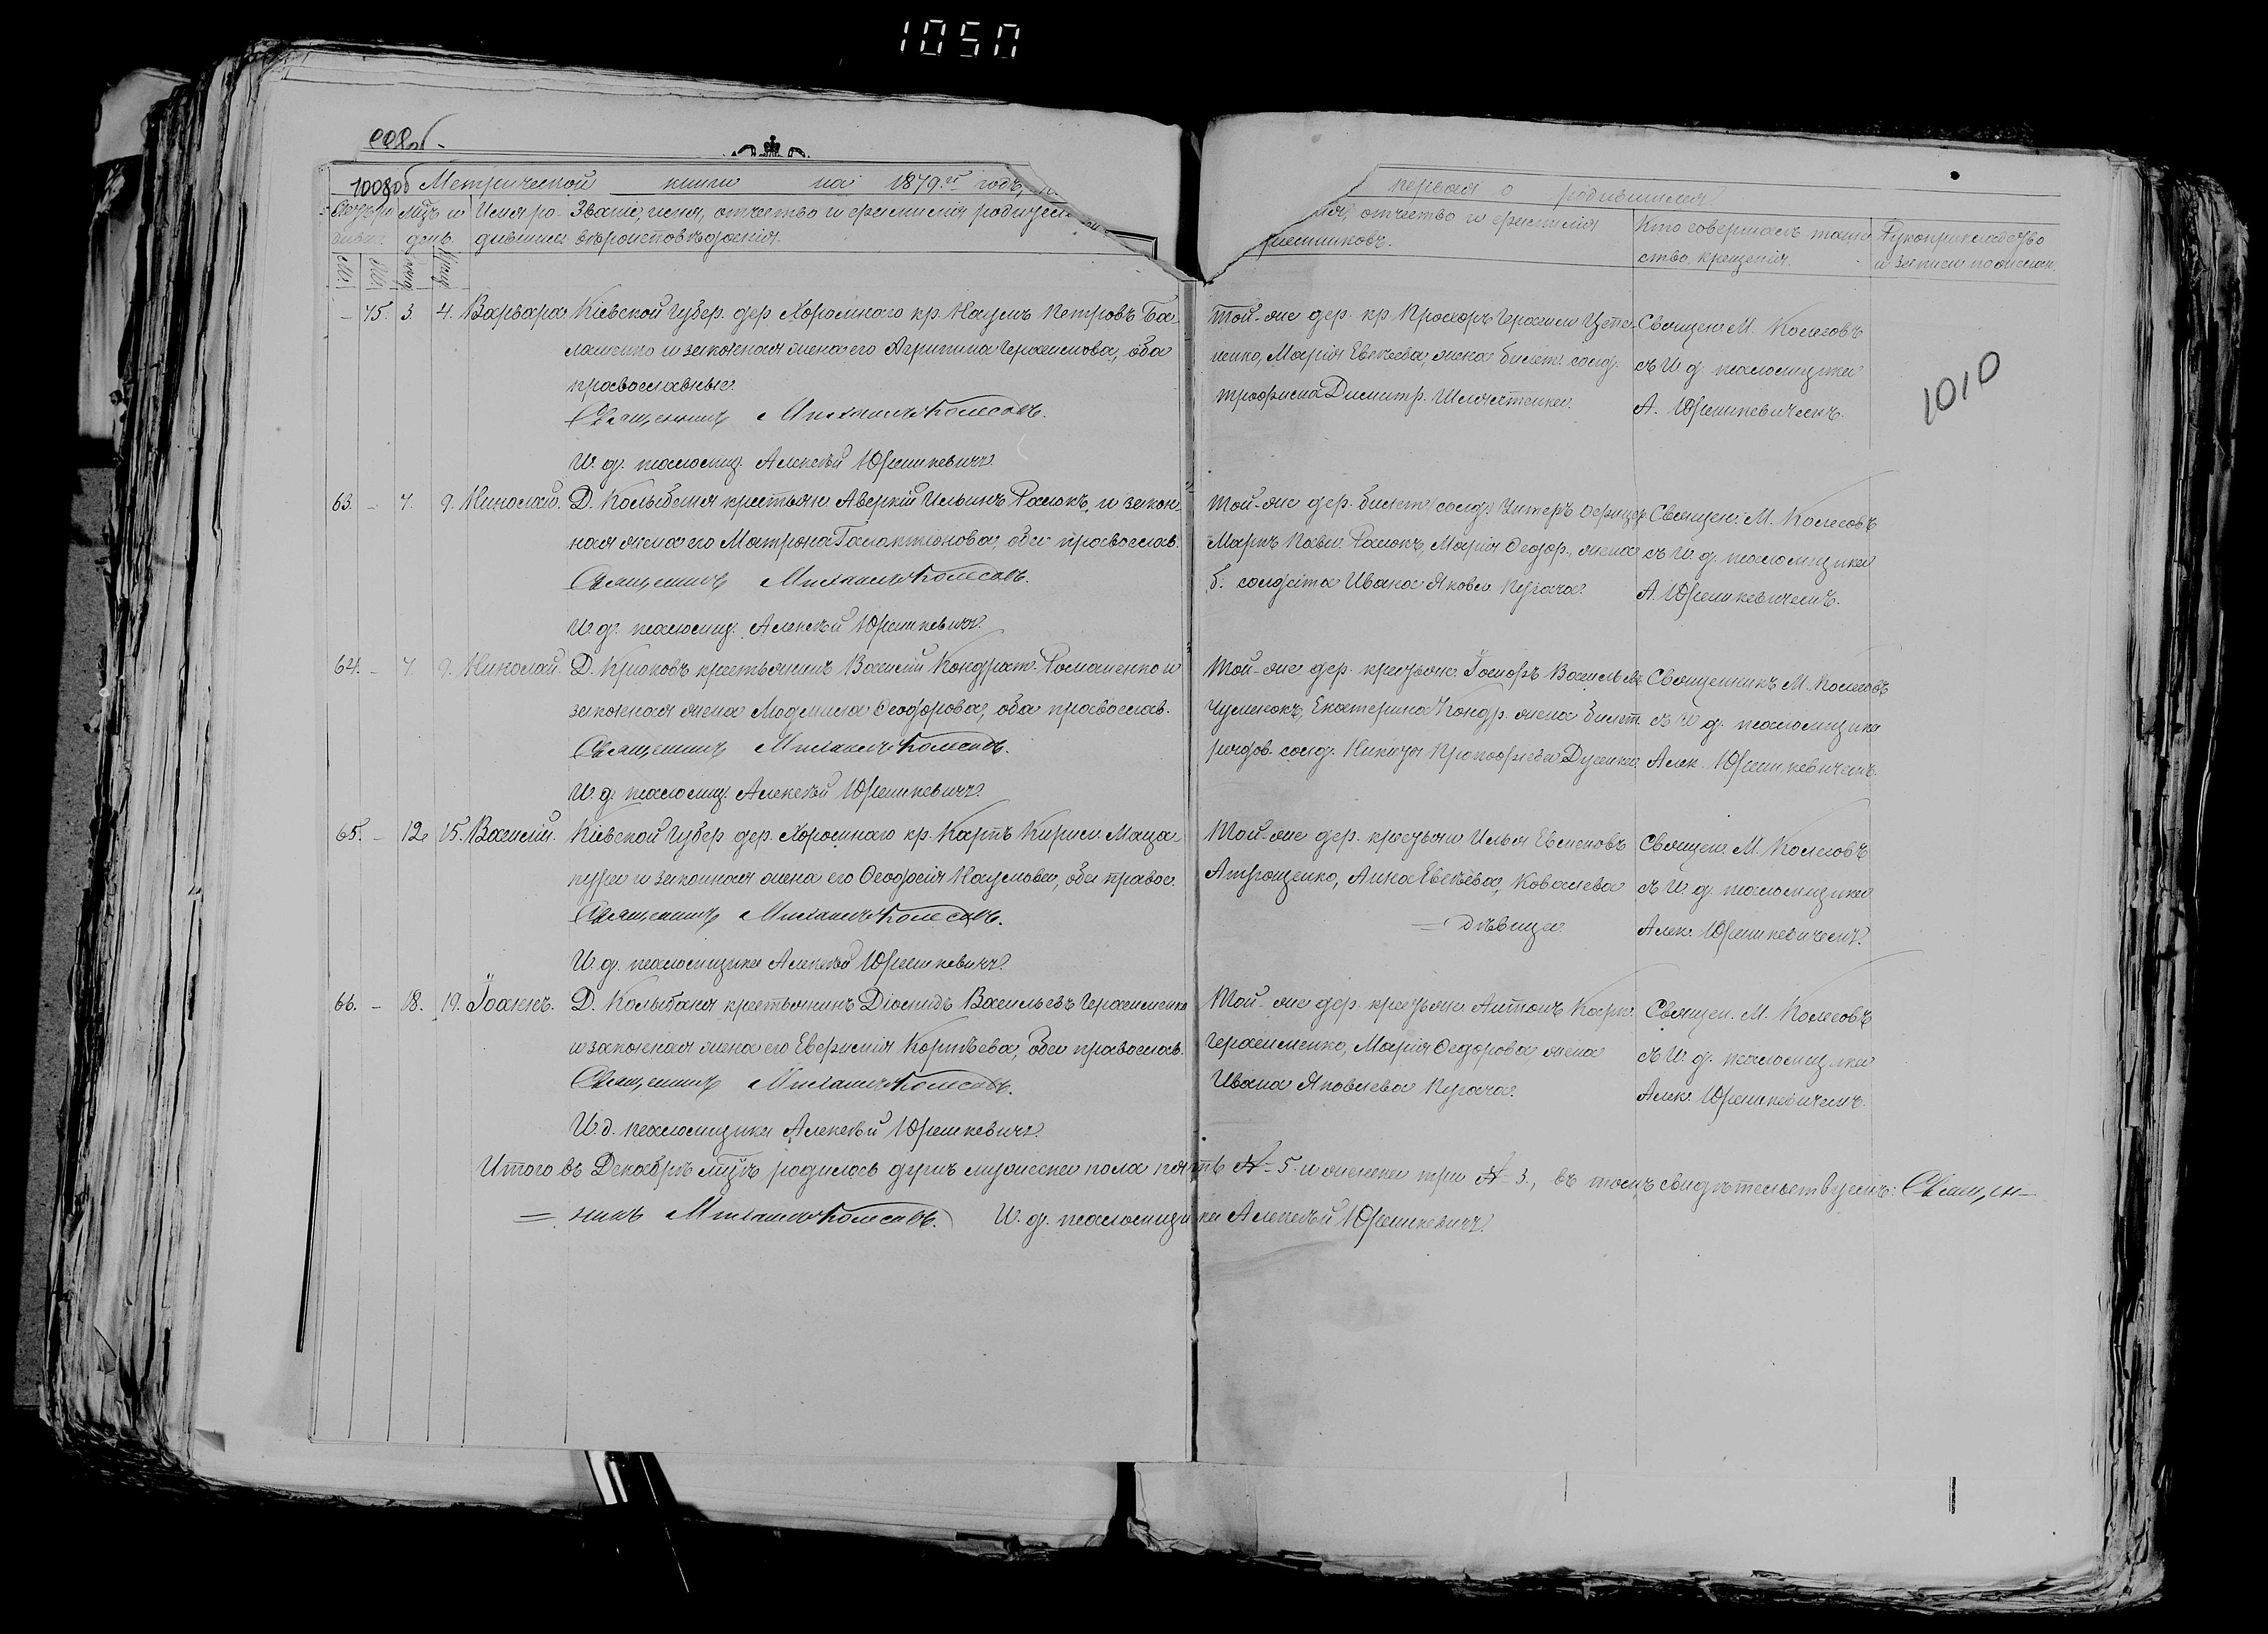 1050
1008об Метрической книги на 1879-й годъ,
первая о родившихся
Имя ро- Званіе, имя, отчество и фамилія родителей
мцъ и день
дившихся вѣроисповѣданія.
отчество и фамилія
Кто совершалъ таин- Рукоприкладство
ство крещенія.
1010
– 75. 3. 4. Варвара Кіевской Губер. дер. Хоромнаго кр. Наумъ Петровъ Ба-
лашенко и законная жена его Агрипина Герасимова, оба
православные.
Священникъ Михаилъ Колесовъ.
И. д. псаломщ. Алексѣй Юрешкевичъ.
Той-же дер. кр. Прохоръ Герасим.
ненко, Марія Евсѣева, жена билет. солд.
Трофима Димитр.
Священ. М. Колесовъ
съ И. д. псаломщика
А. Юрешкевичемъ.
63. – 7. 9. Николай. Д. Колыбаня крестьян. Аверкій Ильинъ и закон-
ная жена его Матрона Галактіонова, оба православ.
Священникъ Михаилъ Колесовъ.
И. д. псаломщ. Алексѣй Юрешкевичъ.
Той-же дер. билет. солд. Унтеръ Офицер.
Маркъ Павл. Марія Феодор., жена
б. солдата Ивана Яковл. Пугача.
Священ. М. Колесовъ
съ И. д. псаломщика
А. Юрешкевичемъ.
64. – 7. 9. Николай. Д. Крюковъ крестьянинъ Василій Кондрат. Романенко и
законная жена Людмила Феодорова, оба православ.
Священникъ Михаилъ Колесовъ.
И. д. псаломщ. Алексѣй Юрешкевичъ.
Той-же дер. крестьян. Іосифъ Васильевъ
Екатерина Кондр. жена билет.
рядов. солд. Никиты Прокофіева
Священникъ М. Колесовъ
съ И. д. псаломщика
Алек. Юрешкевичемъ.
65. – 12. 15. Василій. Кіевской Губер. дер. Хоромнаго кр. Карпъ Кирил. Маца-
пура и законная жена его Феодосія Наумова, оба правос.
Священникъ Михаилъ Колесовъ.
И. д. псаломщика Алексѣй Юрешкевичъ.
Той-же дер. крестьян. Илья
Атрощенко, Анна Евсѣева, Ковалева
= дѣвица.
Священ. М. Колесовъ
съ И. д. псаломщика
Алек. Юрешкевичемъ.
66. – 18. 19. Іоаннъ. Д. Колыбаня крестьянинъ Діомидъ Васильевъ Герасименко
и законная жена его Евфимія Корнѣева, оба православ.
Священникъ Михаилъ Колесовъ.
И. д. псаломщика Алексѣй Юрешкевичъ.
Той-же дер. крестьян. Антонъ Карп.
Герасименко, Марія Федорова жена
Ивана Яковлева Пугача.
Священ. М. Колесовъ
съ И. д. псаломщика
Алек. Юрешкевичемъ.
Итого въ Декабрѣ мцѣ родилось душъ мужеска пола пять № 5. и женска три № 3., въ томъ свидѣтельствуемъ: Священ-
= никъ Михаилъ Колесовъ. И. д. псаломщика Алексѣй Юрешкевичъ.